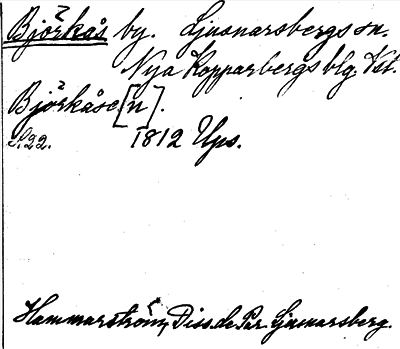 Björkås by. Ljusnarsbergs sn.
Nya Kopparbergs blg. Vst.
Björkåse[n].
S. 22. 1812 Ups.
Hammarström, Diss. de Par. Ljusnarsberg.